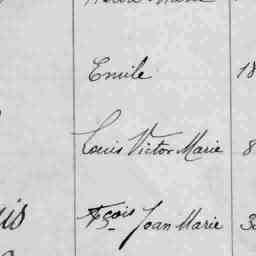 Emile 18
Louis Victor Marie 8
Fçois Jean Marie 3